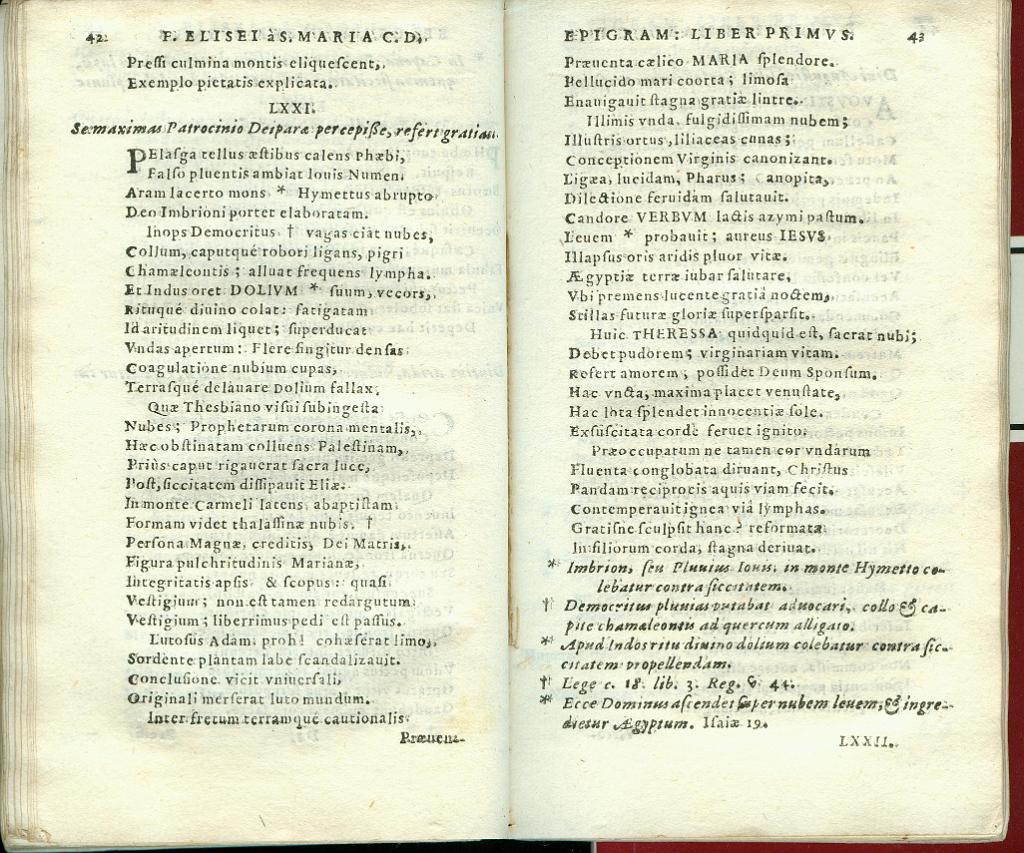 42. F. ELISEI à S. MARIA C. D.
Pressi culmina montis eliquescent,
Exemplo pietatis explicata.
LXXI.
Se maximas Patrocinio Deiparæ percepisse, refert gratias.
PElasga tellus æstibus calens Phæbi,
Falso pluentis ambiat Iouis Numen.
Aram lacerto mons * Hymettus abrupto
Deo Imbrioni portet elaboratam.
Inops Democritus † vagas ciât nubes,
Collum, caputqué robori ligans, pigri
Chamæleontis; alluat frequens lympha.
Et Indus oret DOLIVM * suum, vecors,
Rituqué diuino colat: fatigatam
Id aritudinem liquet; superducat
Vndas apertum: Flere fingitur densas
Coagulatione nubium cupas,
Terrasqué delauare Dolium fallax.
Quæ Thesbiano visui subingesta
Nubes; Prophetarum corona mentalis,
Hæc obstinatam colluens Palestinam,
Priùs caput rigauerat sacra luce,
Post, siccitatem dissipauit Eliæ.
In monte Carmeli latens, abaptistam
Formam videt thalassinæ nubis. †
Persona Magnæ, creditis, Dei Matris,
Figura pulchritudinis Marianæ,
Integritatis apsis & scopus: quasi
Vestigium; non est tamen redargutum
Vestigium; liberrimus pedi est passus.
Lutosus Adam, proh! cohæserat limo,
Sordente plantam labe scandalizauit.
Conclusione vicit vniuersali,
Originali merserat luto mundum.
Inter fretum terramqué cautionalis
Præuen-
EPIGRAM: LIBER PRIMVS. 43
Præuenta cælico MARIA splendore.
Pellucido mari coorta; limosa
Enauigauit stagna gratiæ lintre.
Illimis vnda, fulgidissimam nubem;
Illustris ortus, liliaceas cunas;
Conceptionem Virginis canonizant.
Ligæa, lucidam, Pharus; Canopita,
Dilectione feruidam salutauit.
Candore VERBVM lactis azymi pastum.
Leuem * probauit; aureus IESVS
Illapsus oris aridis pluor vitæ.
Ægyptiæ terræ iubar salutare,
Vbi premens lucente gratiâ noctem,
Stillas futuræ gloriæ supersparsit.
Huic THERESSA quidquid est, sacrat nubi;
Debet pudorem; virginariam vitam.
Refert amorem; possidet Deum Sponsum.
Hac vncta, maxima placet venustate,
Hac lota splendet innocentiæ sole.
Exsuscitata corde feruet ignito.
Præoccupatum ne tamen cor vndarum
Fluenta conglobata diruant, Christus
Pandam reciprocis aquis viam fecit.
Contemperauit ignea viâ lymphas.
Gratisne sculpsit hanc? reformata
In filiorum corda, stagna deriuat.
* Imbrion, seu Pluuius Iouis, in monte Hymetto co-
lebatur contra siccitatem.
† Democritus pluuias putabat aduocari, collo & ca-
pite chamaleontis ad quercum alligato.
* Apud Indos ritu diuino dolium colebatur contra sic-
citatem propellendam.
† Lege c. 18. lib. 3. Reg. v. 44.
* Ecce Dominus ascendet super nubem leuem, & ingre-
dietur Ægyptum. Isaiæ 19.
LXXII.